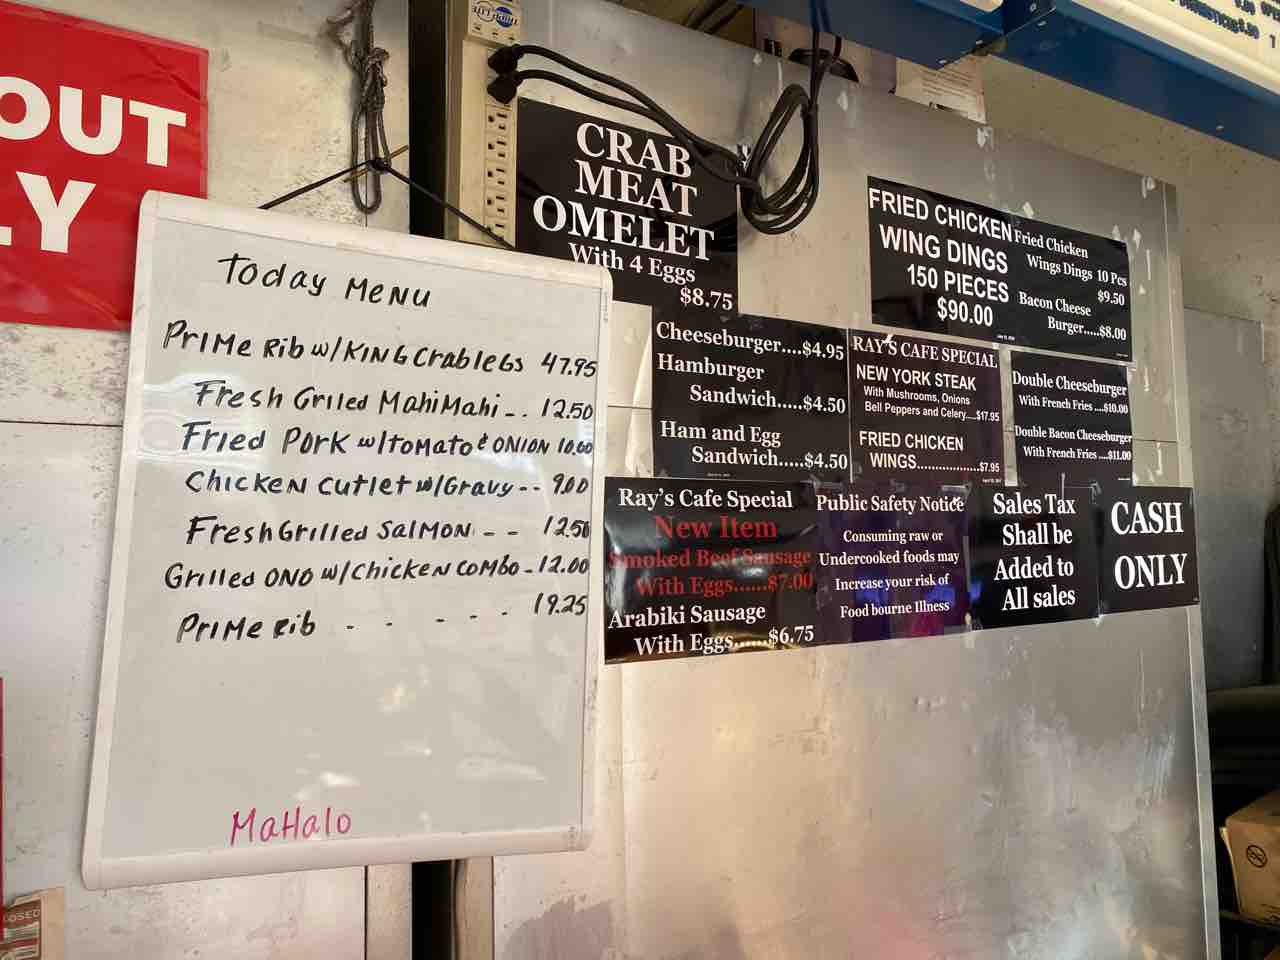 OUT
LY
Today MeNU
PriMe Rib w/KING Crab leGs 47.95
Fresh Griled MahiMahi - - 12.50
Fried Pork w/toMato & ONION 10.00
ChickeN Cutlet w/Gravy - - 9.00
Fresh Grilled SalMON - - 12.50
Grilled ONO w/ChickeN CoMbo - 12.00
PriMe rib - - - - - 19.25
MaHalo
CRAB
MEAT
OMELET
With 4 Eggs
$8.75
FRIED CHICKEN
WING DINGS
150 PIECES
$90.00
Fried Chicken
Wings Dings 10 Pcs
$9.50
Bacon Cheese
Burger.....$8.00
Cheeseburger....$4.95
Hamburger
Sandwich.....$4.50
Ham and Egg
Sandwich.....$4.50
RAY'S CAFE SPECIAL
NEW YORK STEAK
With Mushrooms, Onions
Bell Peppers and Celery....$17.95
FRIED CHICKEN
WINGS..................$7.95
Double Cheeseburger
With French Fries ....$10.00
Double Bacon Cheeseburger
With French Fries ....$11.00
Ray's Cafe Special
New Item
Smoked Beef Sausage
With Eggs......$7.00
Arabiki Sausage
With Eggs......$6.75
Public Safety Notice
Consuming raw or
Undercooked foods may
Increase your risk of
Food bourne Illness
Sales Tax
Shall be
Added to
All sales
CASH
ONLY